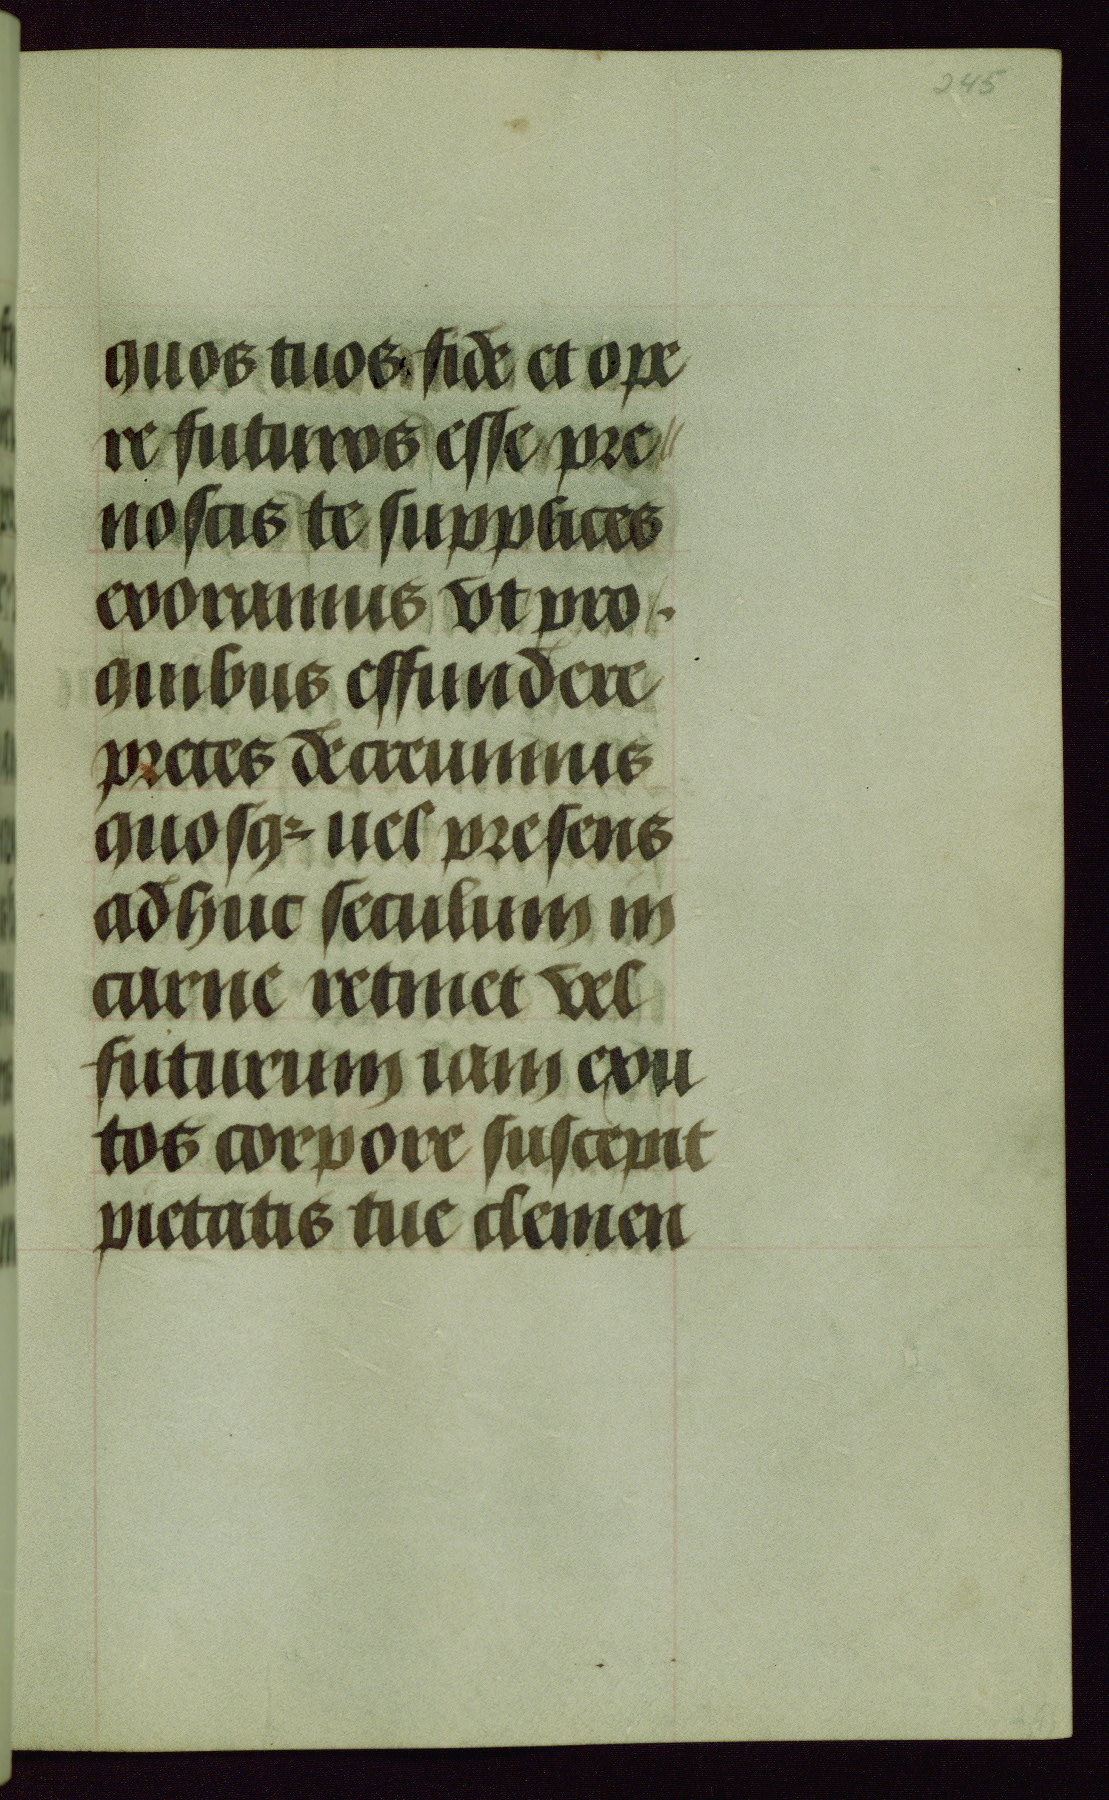 245
quos tuos fide et ope
re futuros esse pre//
noscis te supplices
exoramus vt pro
quibus effundere
preces decreuimus
quosqꝫ uel presens
adhuc seculum in
carne retinet vel
futurum iam exu
tos corpore suscepit
pietatis tue clemen